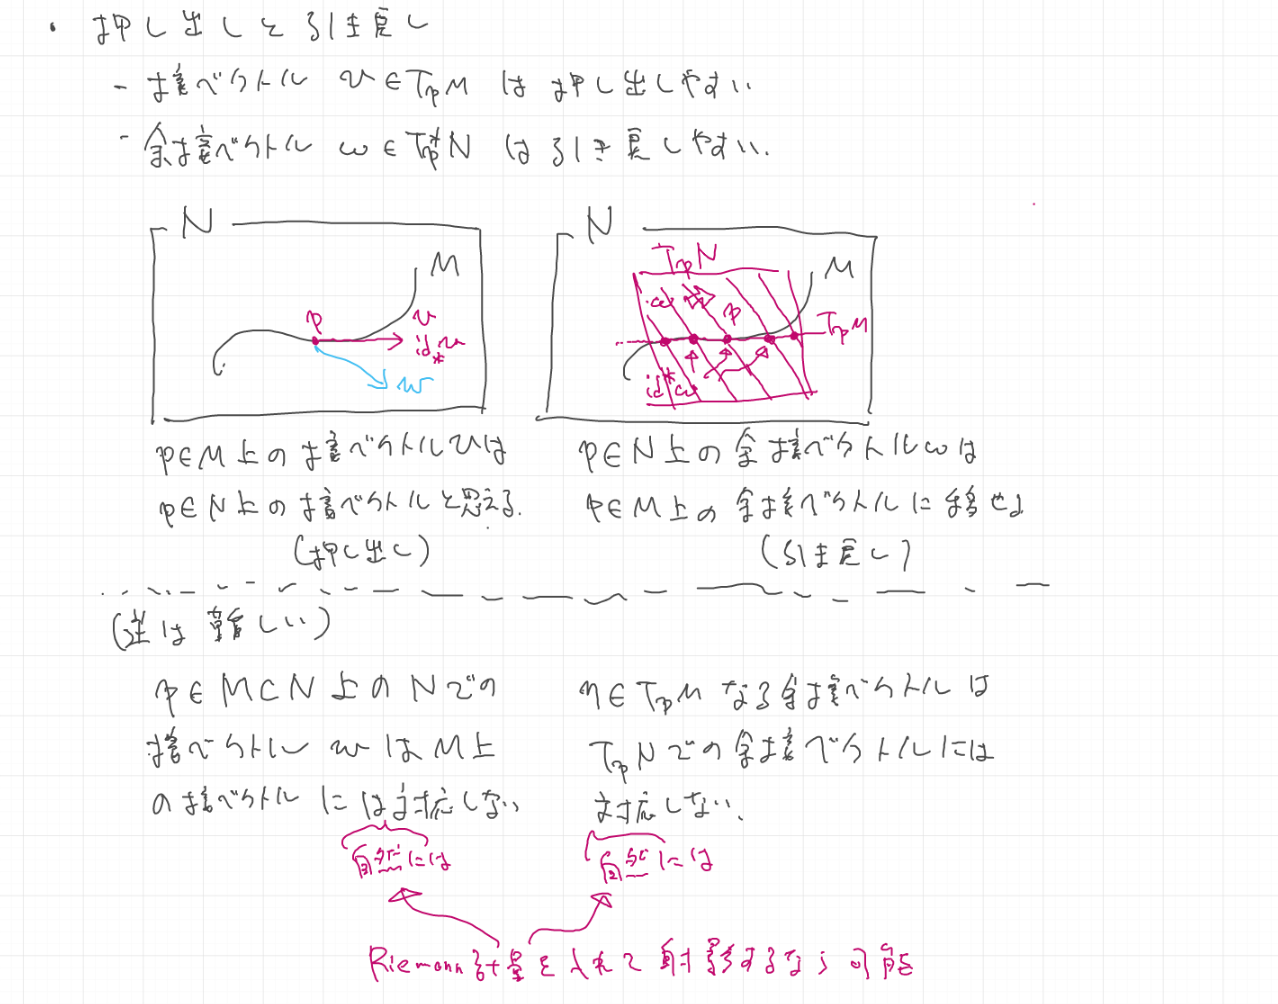 ・押し出しと引き戻し
- 接ベクトル v∈TpM は 押し出しやすい
- 余接ベクトル ω∈Tp*N は 引き戻しやすい.
N
M
p
v
id*v
w
N
TpN
M
ω
p
TpM
id*ω
p∈M上の接ベクトルvは
p∈N上の接ベクトルと思える.
(押し出し)
p∈N上の余接ベクトルωは
p∈M上の余接ベクトルに移せる
(引き戻し)
(逆は難しい)
p∈M⊂N上のNでの
接ベクトル w はM上
の接ベクトルには対応しない
自然には
η∈TpM なる余接ベクトルは
TpNでの余接ベクトルには
対応しない.
自然には
Riemann計量を入れて射影するなら可能